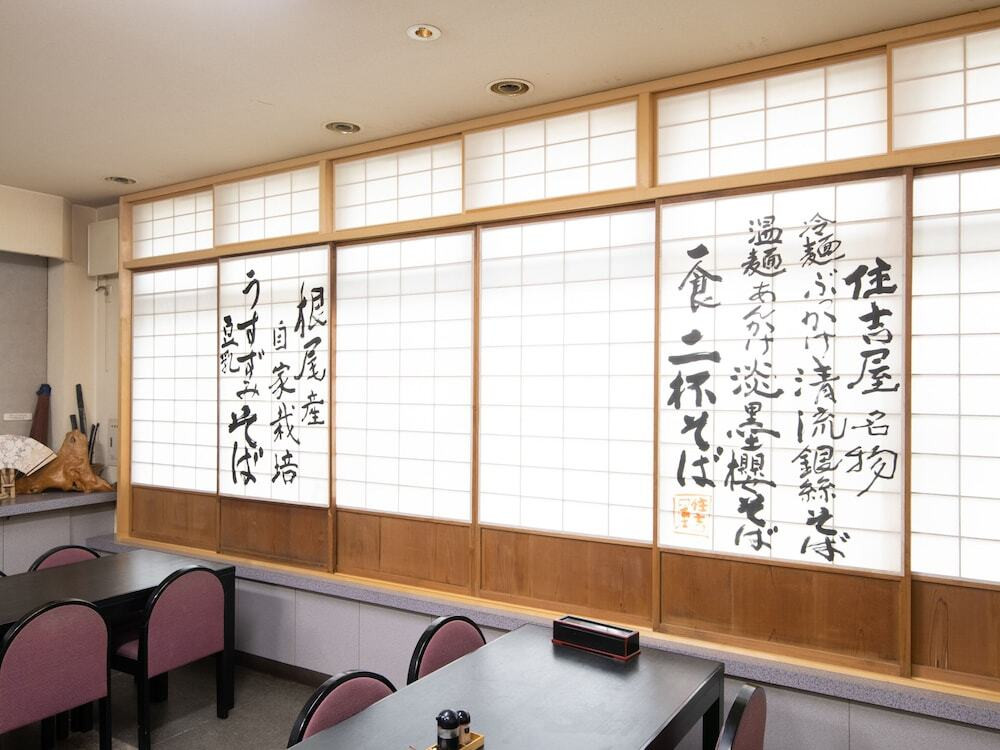 住吉屋 名物
冷麺 ぶっかけ 清流銀絲そば
温麺 あんかけ 淡墨櫻そば
一食 二杯そば
根尾産
自家栽培
うすずみそば
豆乳